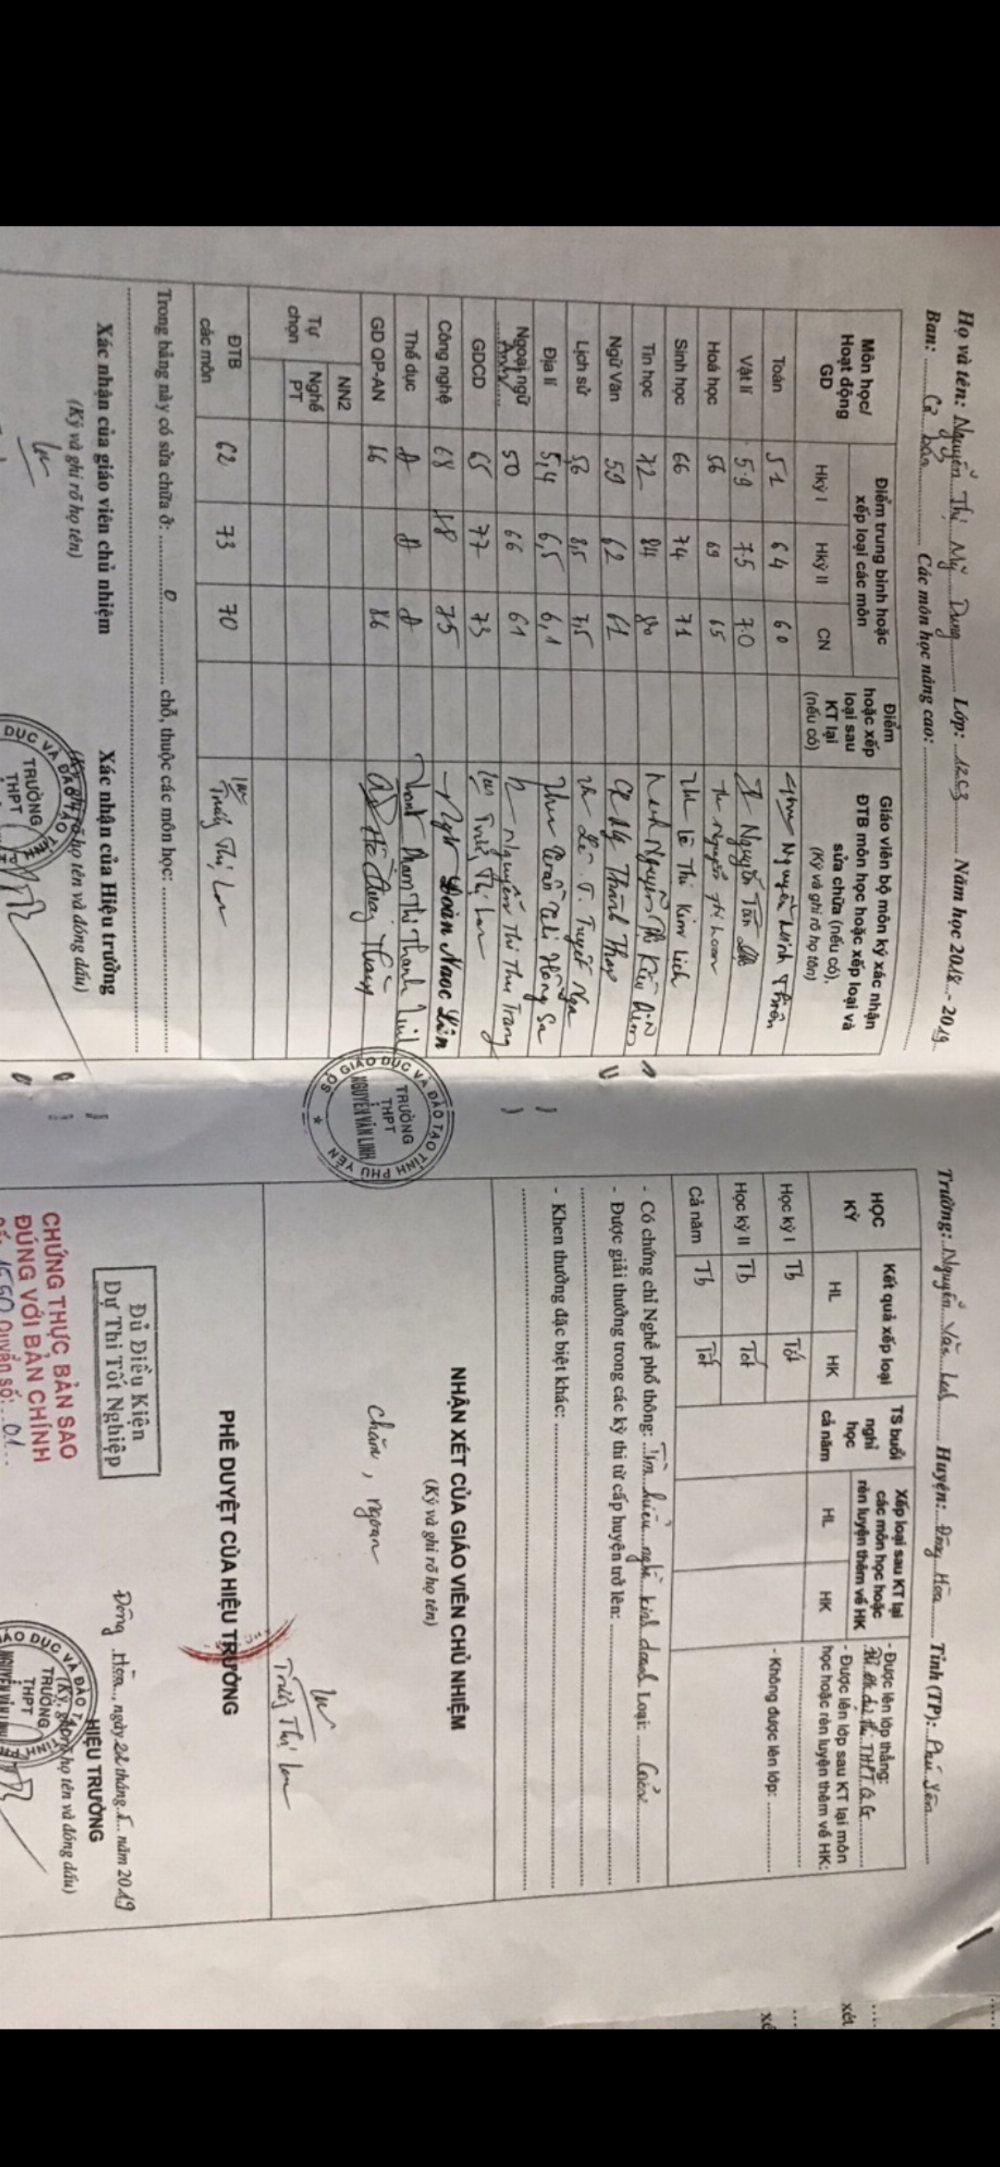 Họ và tên: Nguyễn Thị Mỹ Dung Lớp: 12C3 Năm học 2018 - 2019
Ban: Cơ bản Các môn học nâng cao:
Môn học/ Hoạt động GD
Điểm trung bình hoặc xếp loại các môn
Hkỳ I Hkỳ II CN
Điểm hoặc xếp loại sau KT lại (nếu có)
Giáo viên bộ môn ký xác nhận ĐTB môn học hoặc xếp loại và sửa chữa (nếu có),
(Ký và ghi rõ họ tên)
Toán 51 64 60 Nguyễn Minh
Vật lí 5.9 7.5 7.0 Nguyễn Tấn
Hoá học 56 69 65 Nguyễn Thị Loan
Sinh học 66 74 71 Lê Thị Kim Lịch
Tin học 72 84 80 Nguyễn Thị Kiều
Ngữ Văn 59 62 61 Thành
Lịch sử 56 8,5 7,5 Lê T. Tuyết Nga
Địa lí 5,4 6,5 6,1 Trần Thị Hồng Sa
Ngoại ngữ Anh 50 66 61 Nguyễn Thị Thu Trang
GDCD 65 77 73 Trương Thị Lan
Công nghệ 68 78 75 Đoàn Ngọc
Thể dục Đ Đ Đ Phạm Thị Thanh Linh
GD QP-AN 86
Tự chọn
NN2
Nghề PT
ĐTB các môn 62 73 70 Thị Lan
Trong bảng này có sửa chữa ở: 0 chỗ, thuộc các môn học:
Xác nhận của giáo viên chủ nhiệm
(Ký và ghi rõ họ tên)
Xác nhận của Hiệu trưởng
(Ký, ghi rõ họ tên và đóng dấu)
DỤC VÀ ĐÀO TẠO
TRƯỜNG
THPT
SỞ GIÁO DỤC VÀ ĐÀO TẠO TỈNH PHÚ YÊN
TRƯỜNG
THPT
NGUYỄN VĂN LINH
Trường: Nguyễn Văn Linh Huyện: Đông Hòa Tỉnh (TP): Phú Yên
HỌC KỲ
Kết quả xếp loại
HL HK
TS buổi nghỉ học cả năm
Xếp loại sau KT lại các môn học hoặc rèn luyện thêm về HK
HL HK
Học kỳ I Tb Tốt
Học kỳ II Tb Tốt
Cả năm Tb Tốt
- Được lên lớp thẳng:
Đủ đk dự thi THPT QG
- Được lên lớp sau KT lại môn học hoặc rèn luyện thêm về HK:
- Không được lên lớp:
- Có chứng chỉ Nghề phổ thông: Tìm hiểu nghề kinh doanh Loại: Giỏi
- Được giải thưởng trong các kỳ thi từ cấp huyện trở lên:
- Khen thưởng đặc biệt khác:
NHẬN XÉT CỦA GIÁO VIÊN CHỦ NHIỆM
(Ký và ghi rõ họ tên)
chăm, ngoan
Thị Lan
PHÊ DUYỆT CỦA HIỆU TRƯỞNG
Đủ Điều Kiện
Dự Thi Tốt Nghiệp
Đông Hòa, ngày 22 tháng 5 năm 2019
HIỆU TRƯỞNG
(Ký, ghi rõ họ tên và đóng dấu)
TRƯỜNG
THPT
NGUYỄN VĂN LINH
CHỨNG THỰC BẢN SAO
ĐÚNG VỚI BẢN CHÍNH
Quyển số: 01
xét